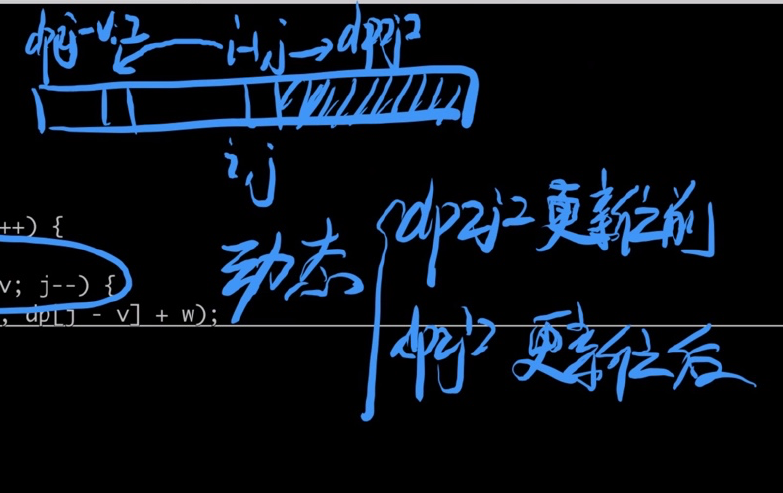 dp[j-v] i-1,j → dp[j]
i,j
++) {
v; j--) {
, dp[j - v] + w);
动态
dp[j] 更新之前
dp[j] 更新之后